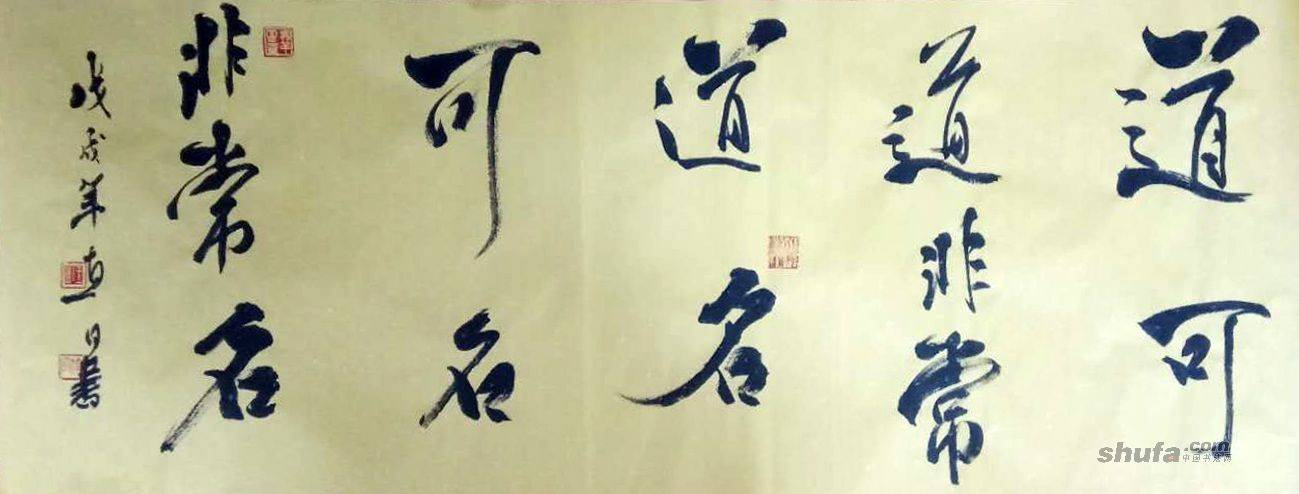 道可
道非常
道名
可名
非常名
戊戌年直日書
shufa.com
中国书法网